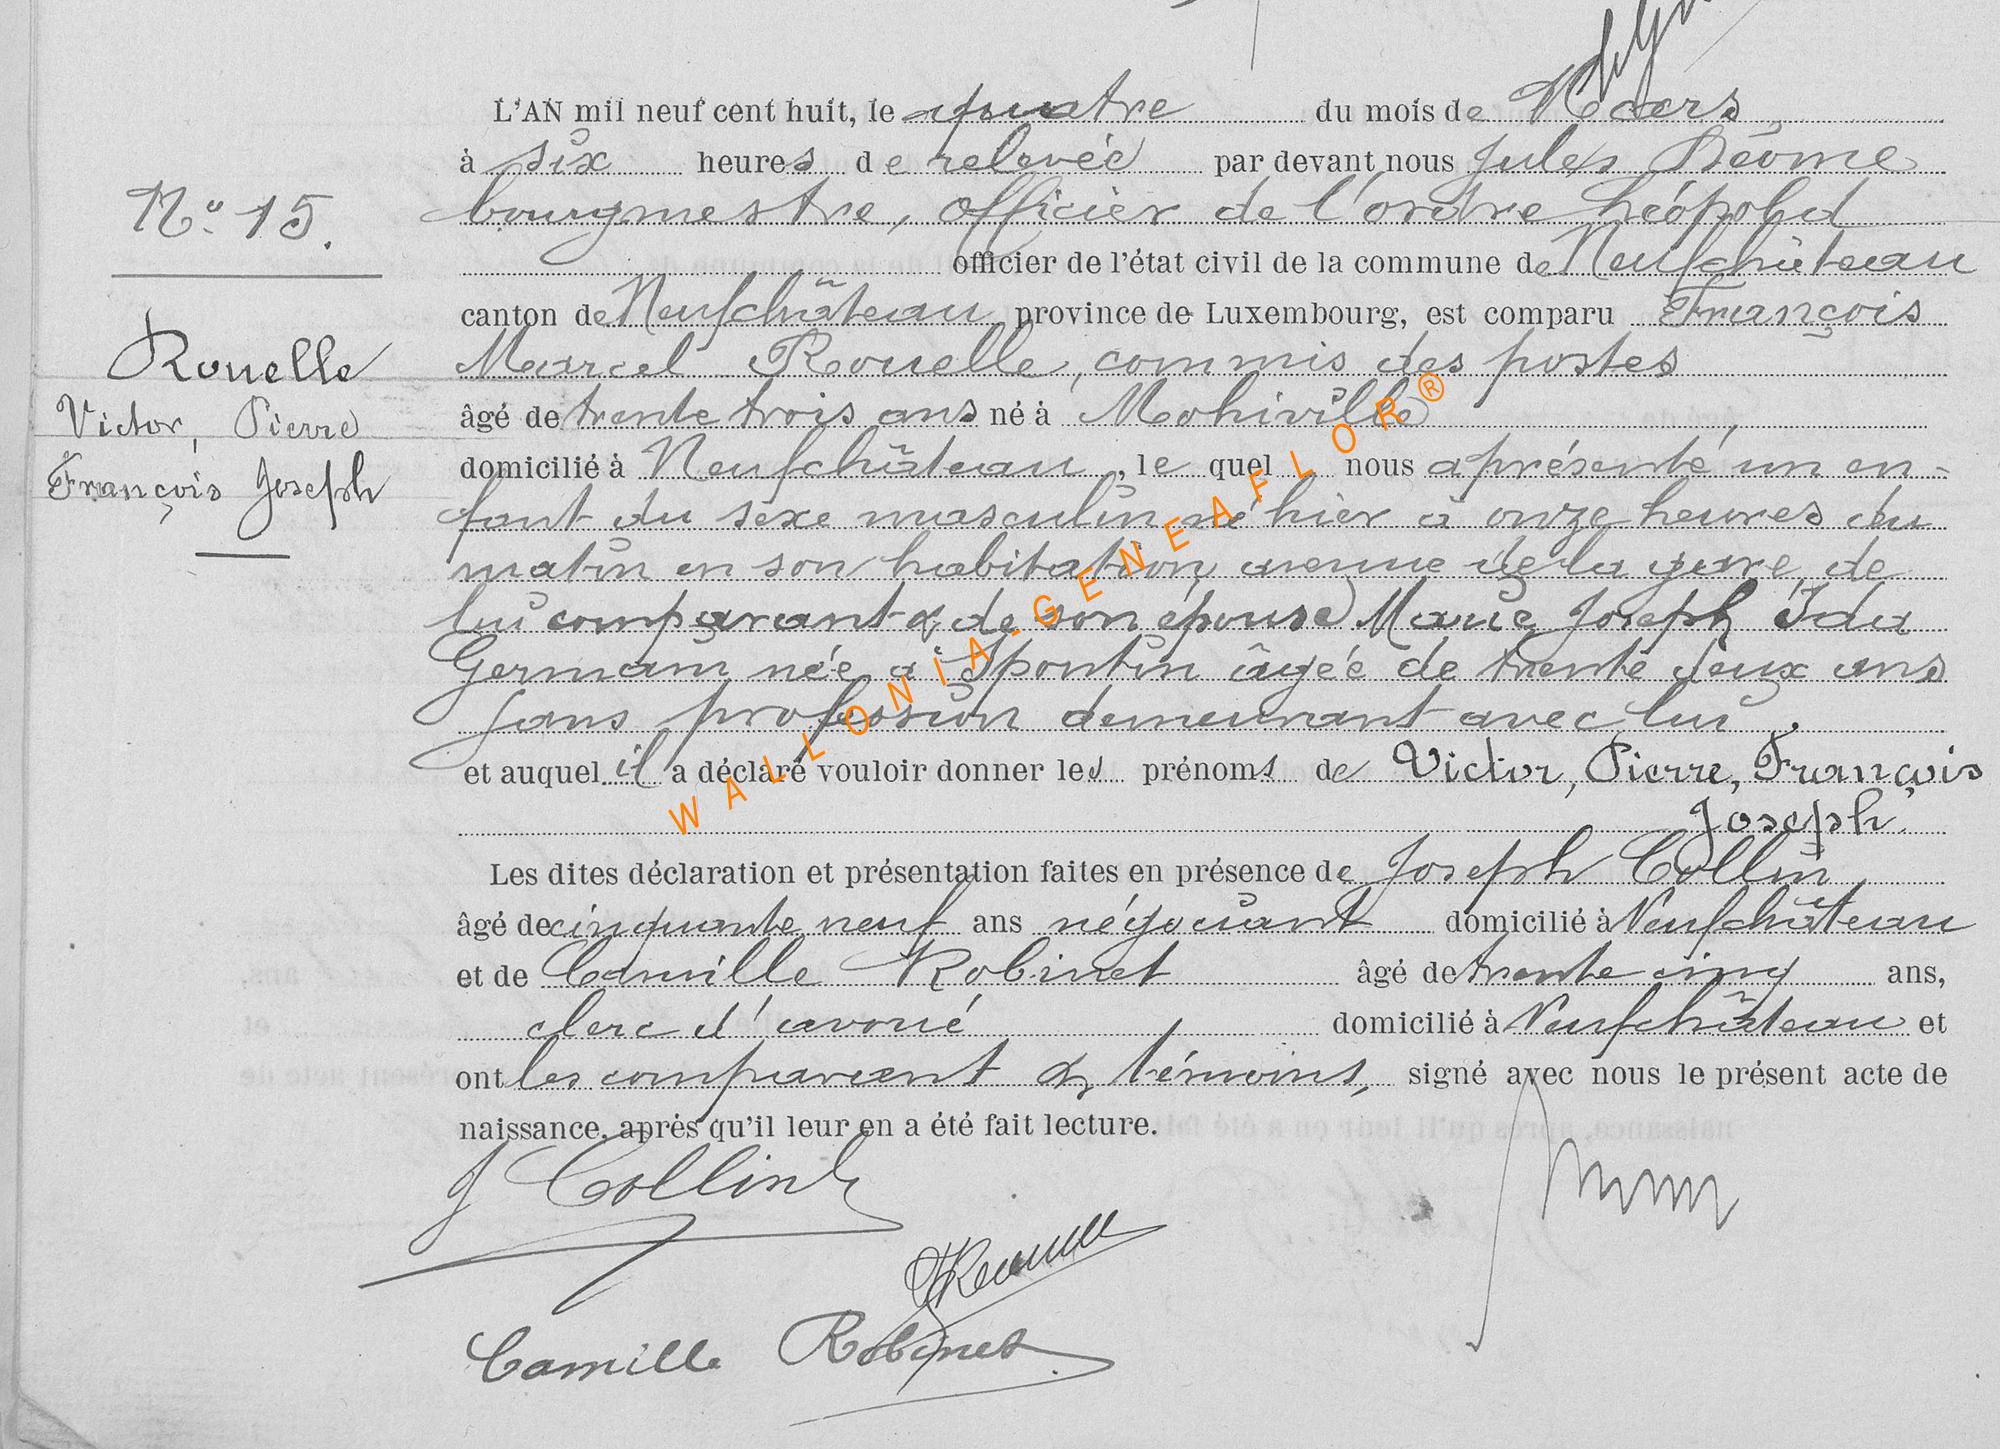 L'AN mil neuf cent huit, le quatre du mois de Mars
à six heures de relevée par devant nous Jules Déome
bourgmestre, officier de l'ordre Léopold
officier de l'état civil de la commune de Neufchâteau
canton de Neufchâteau province de Luxembourg, est comparu François
Marcel Rouelle, commis des postes
âgé de trente trois ans né à Mohiville,
domicilié à Neufchâteau, le quel nous a présenté un en-
fant du sexe masculin né hier à onze heures du
matin en son habitation avenue de la gare, de
lui comparant & de son épouse Marie Joseph Ida
Germain née à Spontin âgée de trente deux ans
sans profession demeurant avec lui.
et auquel il a déclaré vouloir donner les prénoms de Victor, Pierre, François
Joseph.
Les dites déclaration et présentation faites en présence de Joseph Collin
âgé de cinquante neuf ans négociant domicilié à Neufchâteau
et de Camille Robinet âgé de trente cinq ans,
clerc d'avoué domicilié à Neufchâteau et
ont les comparant & témoins, signé avec nous le présent acte de
naissance, après qu'il leur en a été fait lecture.
J Collin
FRouelle
Camille Robinet
N° 15.
Rouelle
Victor, Pierre
François Joseph
WALLONIA.GENEAFLOR®